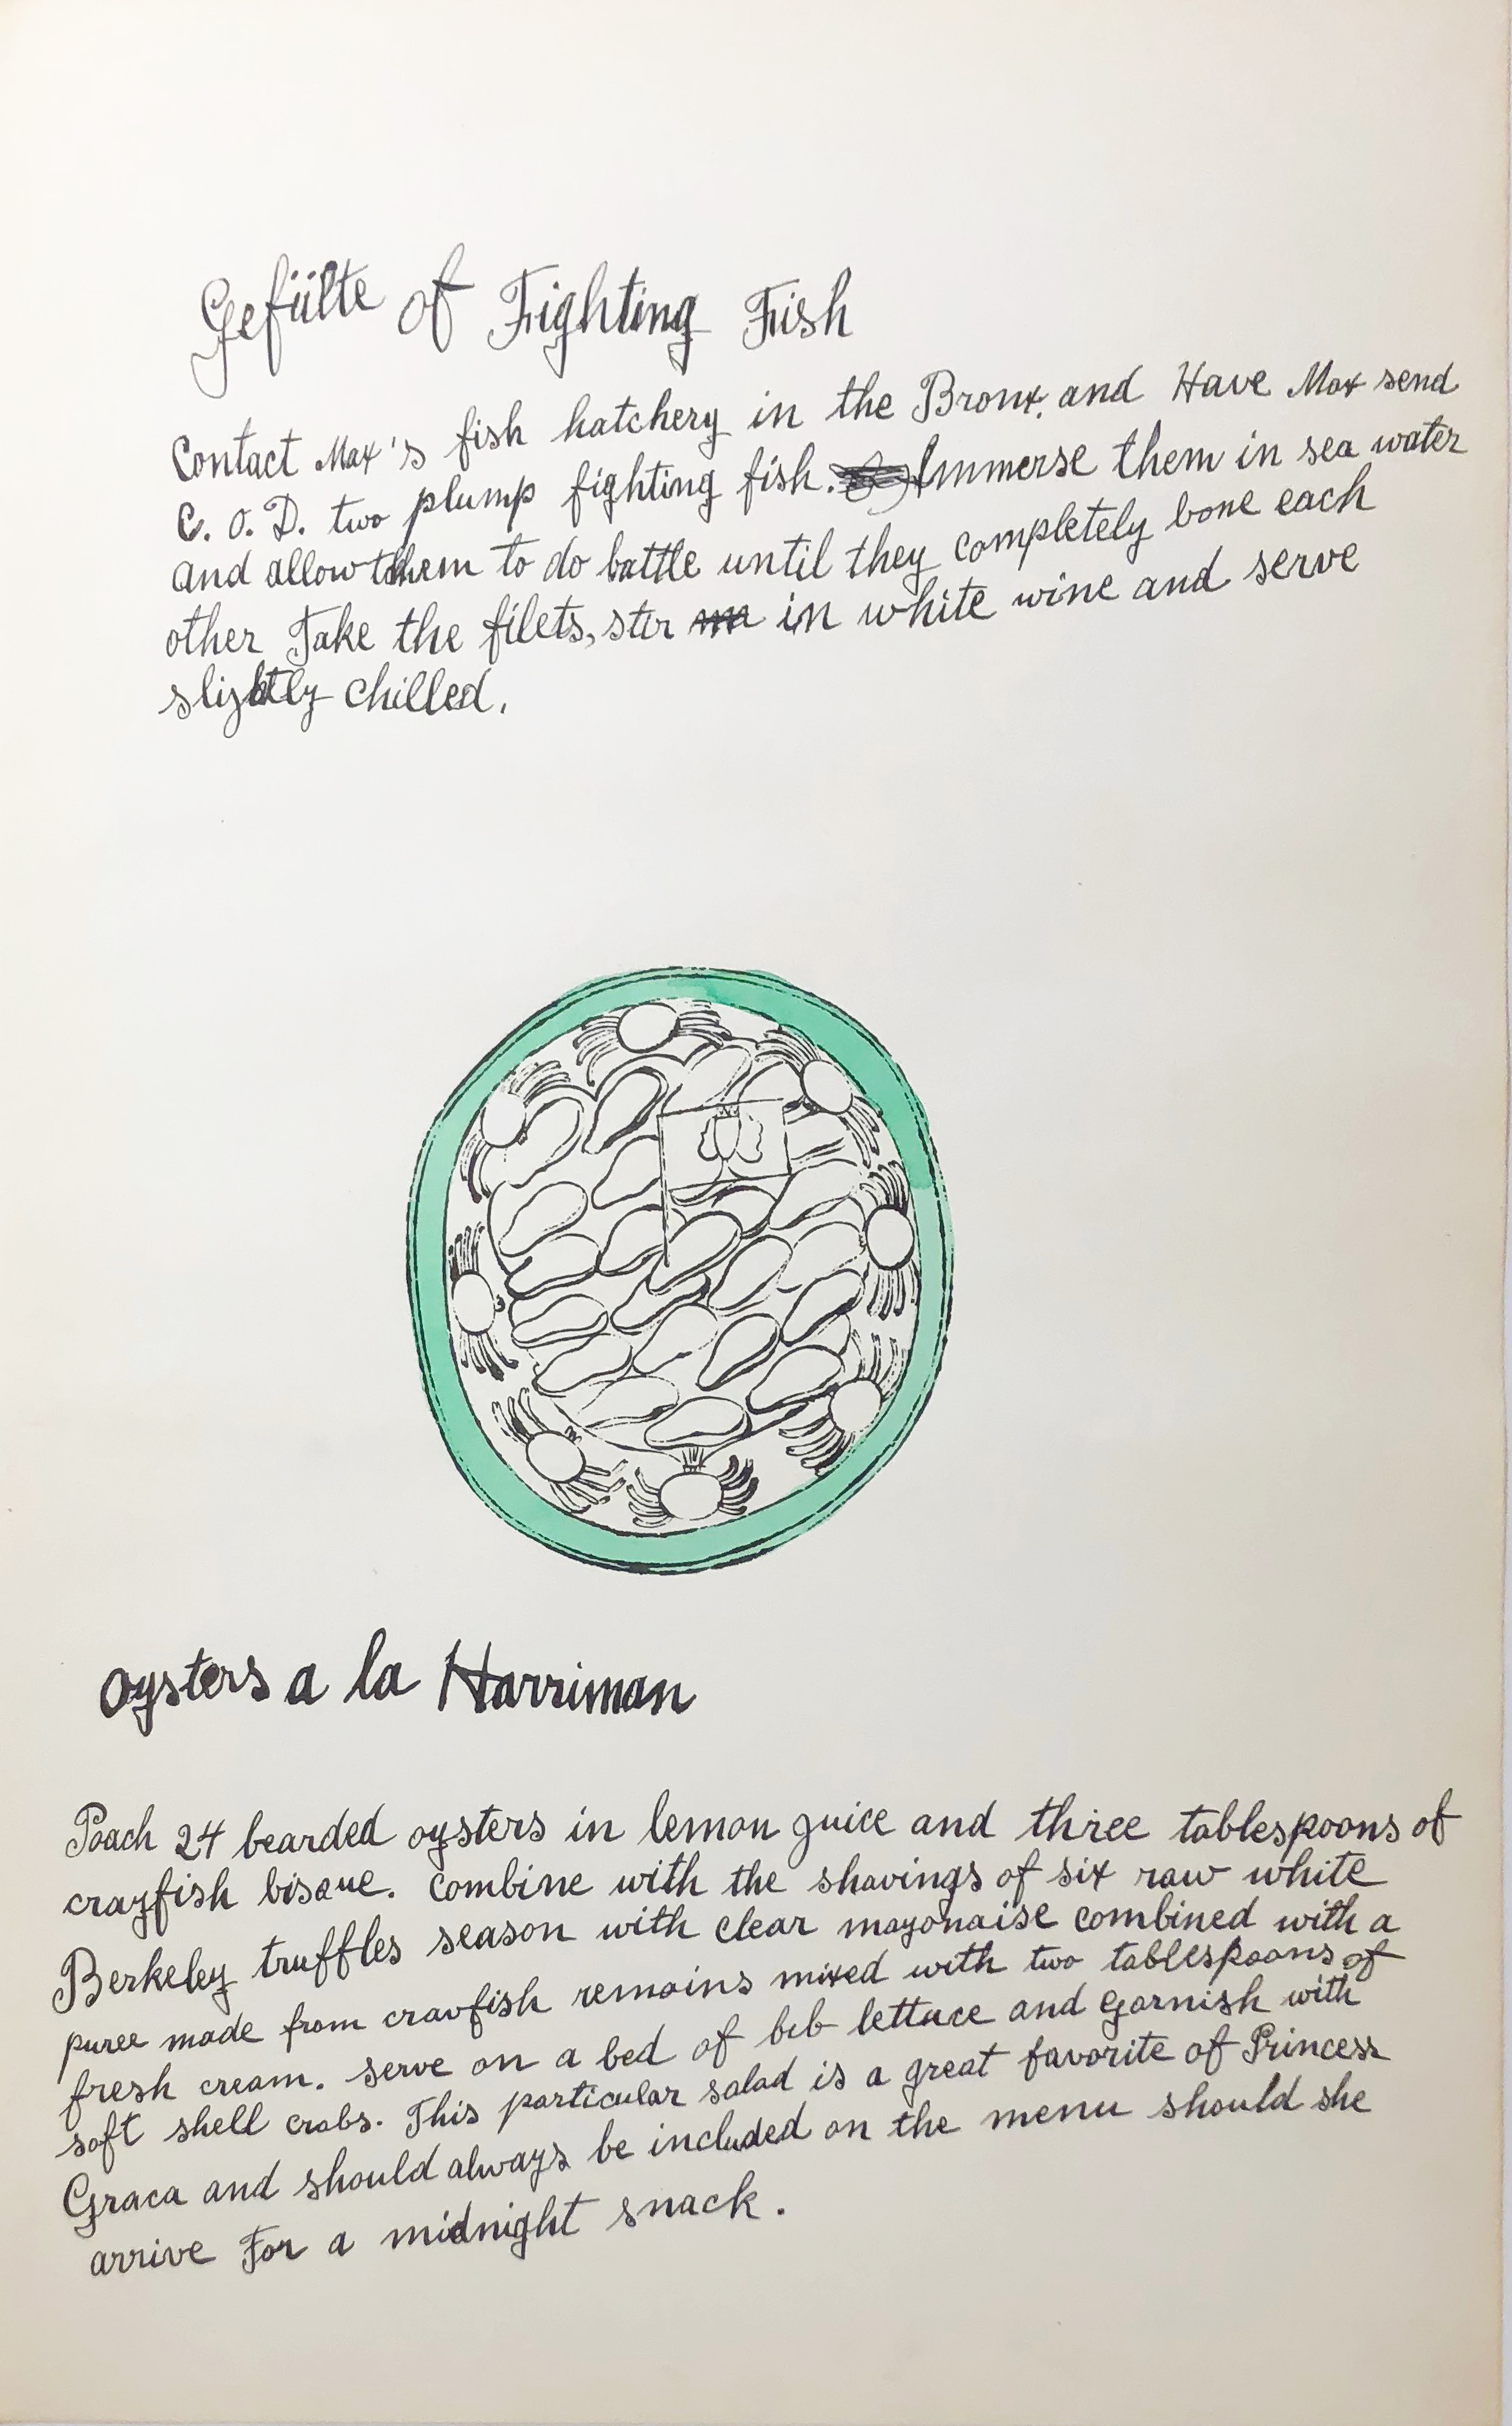 Gefülte of Fighting Fish
Contact Max's fish hatchery in the Bronx. and Have Max send
C. O. D. two plump fighting fish. Immerse them in sea water
and allow them to do battle until they completely bone each
other Take the filets, stir in white wine and serve
slightly chilled.
Oysters a la Harriman
Poach 24 bearded oysters in lemon juice and three tablespoons of
crayfish bisque. Combine with the shavings of six raw white
Berkeley truffles season with clear mayonaise combined with a
puree made from crayfish remains mixed with two tablespoons of
fresh cream. serve on a bed of bib lettuce and garnish with
soft shell crabs. This particular salad is a great favorite of Princess
Graca and should always be included on the menu should she
arrive For a midnight snack.